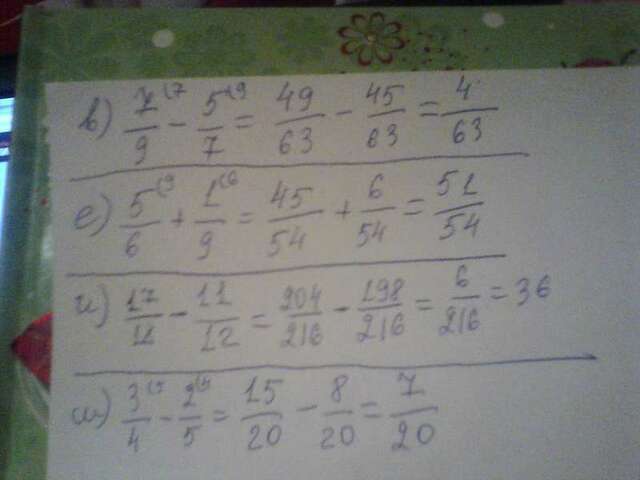 в) 7(7/9 - 5(9/7 = 49/63 - 45/63 = 4/63
е) 5(9/6 + 1(6/9 = 45/54 + 6/54 = 51/54
и) 17/ - 11/12 = 204/216 - 198/216 = 6/216 = 36
м) 3(5/4 - 2(4/5 = 15/20 - 8/20 = 7/20